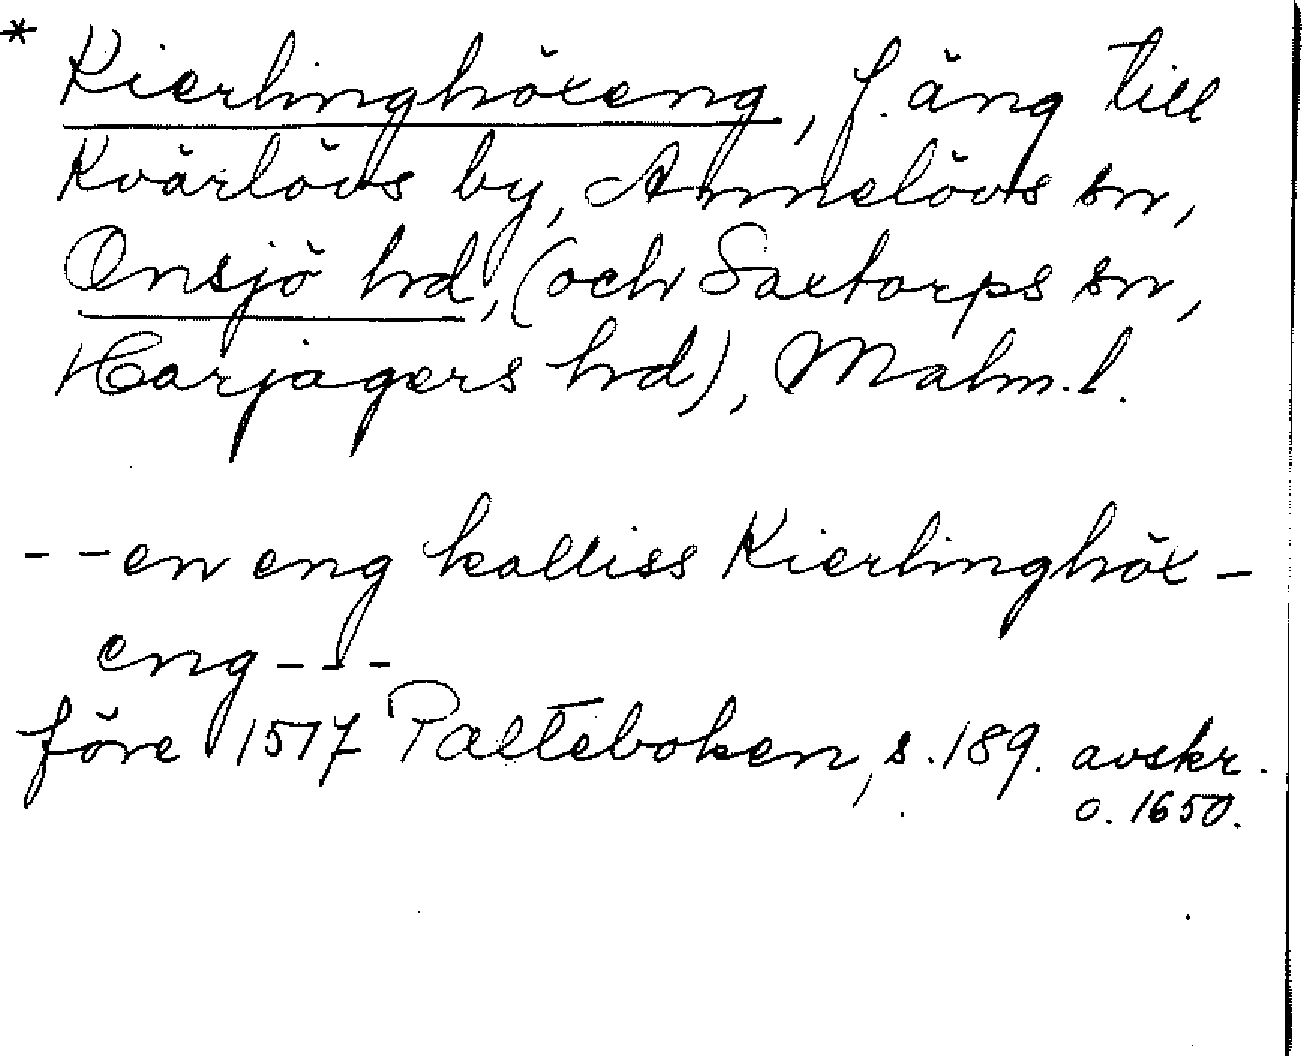 * Kierlinghöxeng, f. äng till
Kvärlövs by, Annelövs sn,
Onsjö hd, (och Saxtorps sn,
Harjagers hd), Malm.l.
- - en eng kalliss Kierlinghöx-
eng - - -
före 1517 Palteboken, s. 189. avskr.
o. 1650.